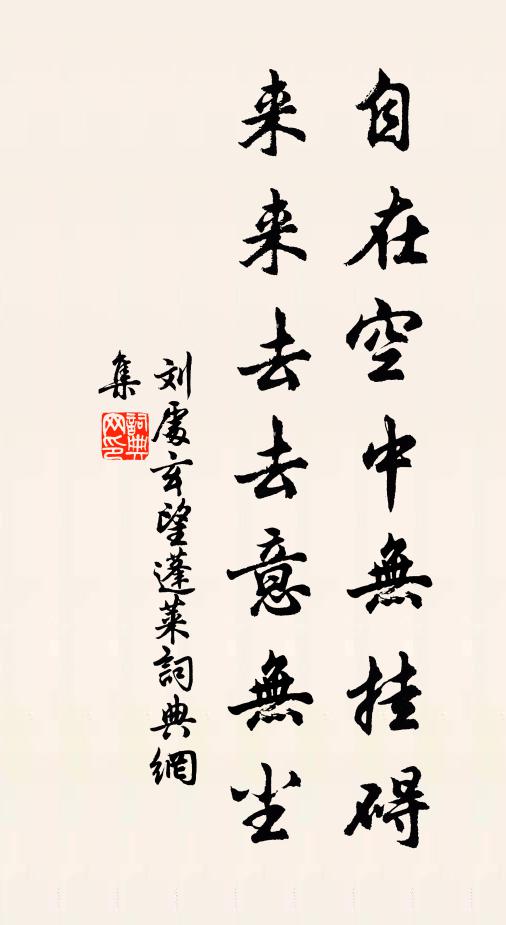 自在空中無挂碍
来来去去意無尘
刘處玄望蓬莱詞典網
集
詞典
网印